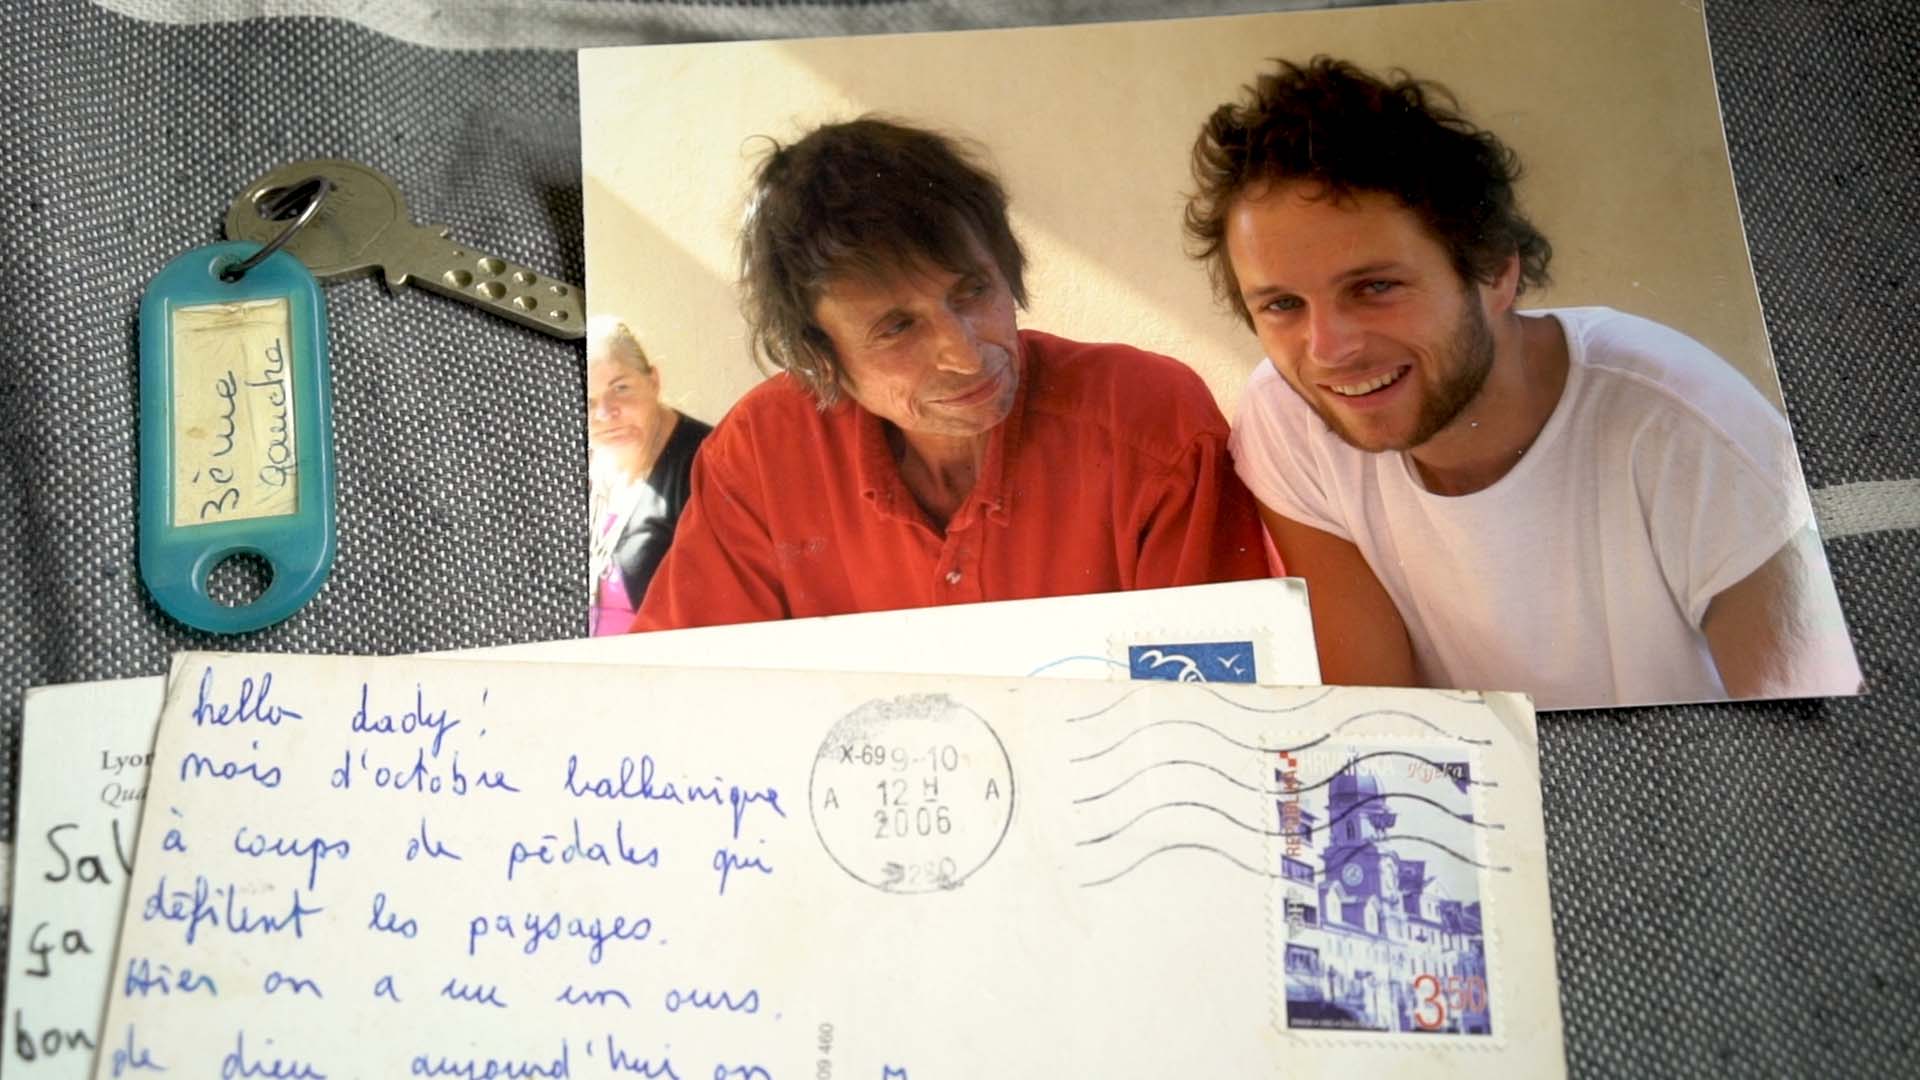 3ème
gauche
hello dady!
mois d'octobre balkanique
à coups de pédales qui
défilent les paysages.
Hier on a vu un ours.
de dieu aujourd'hui on
X-69 9-10
12 H
A A
2006
REPUBLIKA HRVATSKA
Rijeka
3.50
09 460
Lyon
Qua
Sal
ça
bon